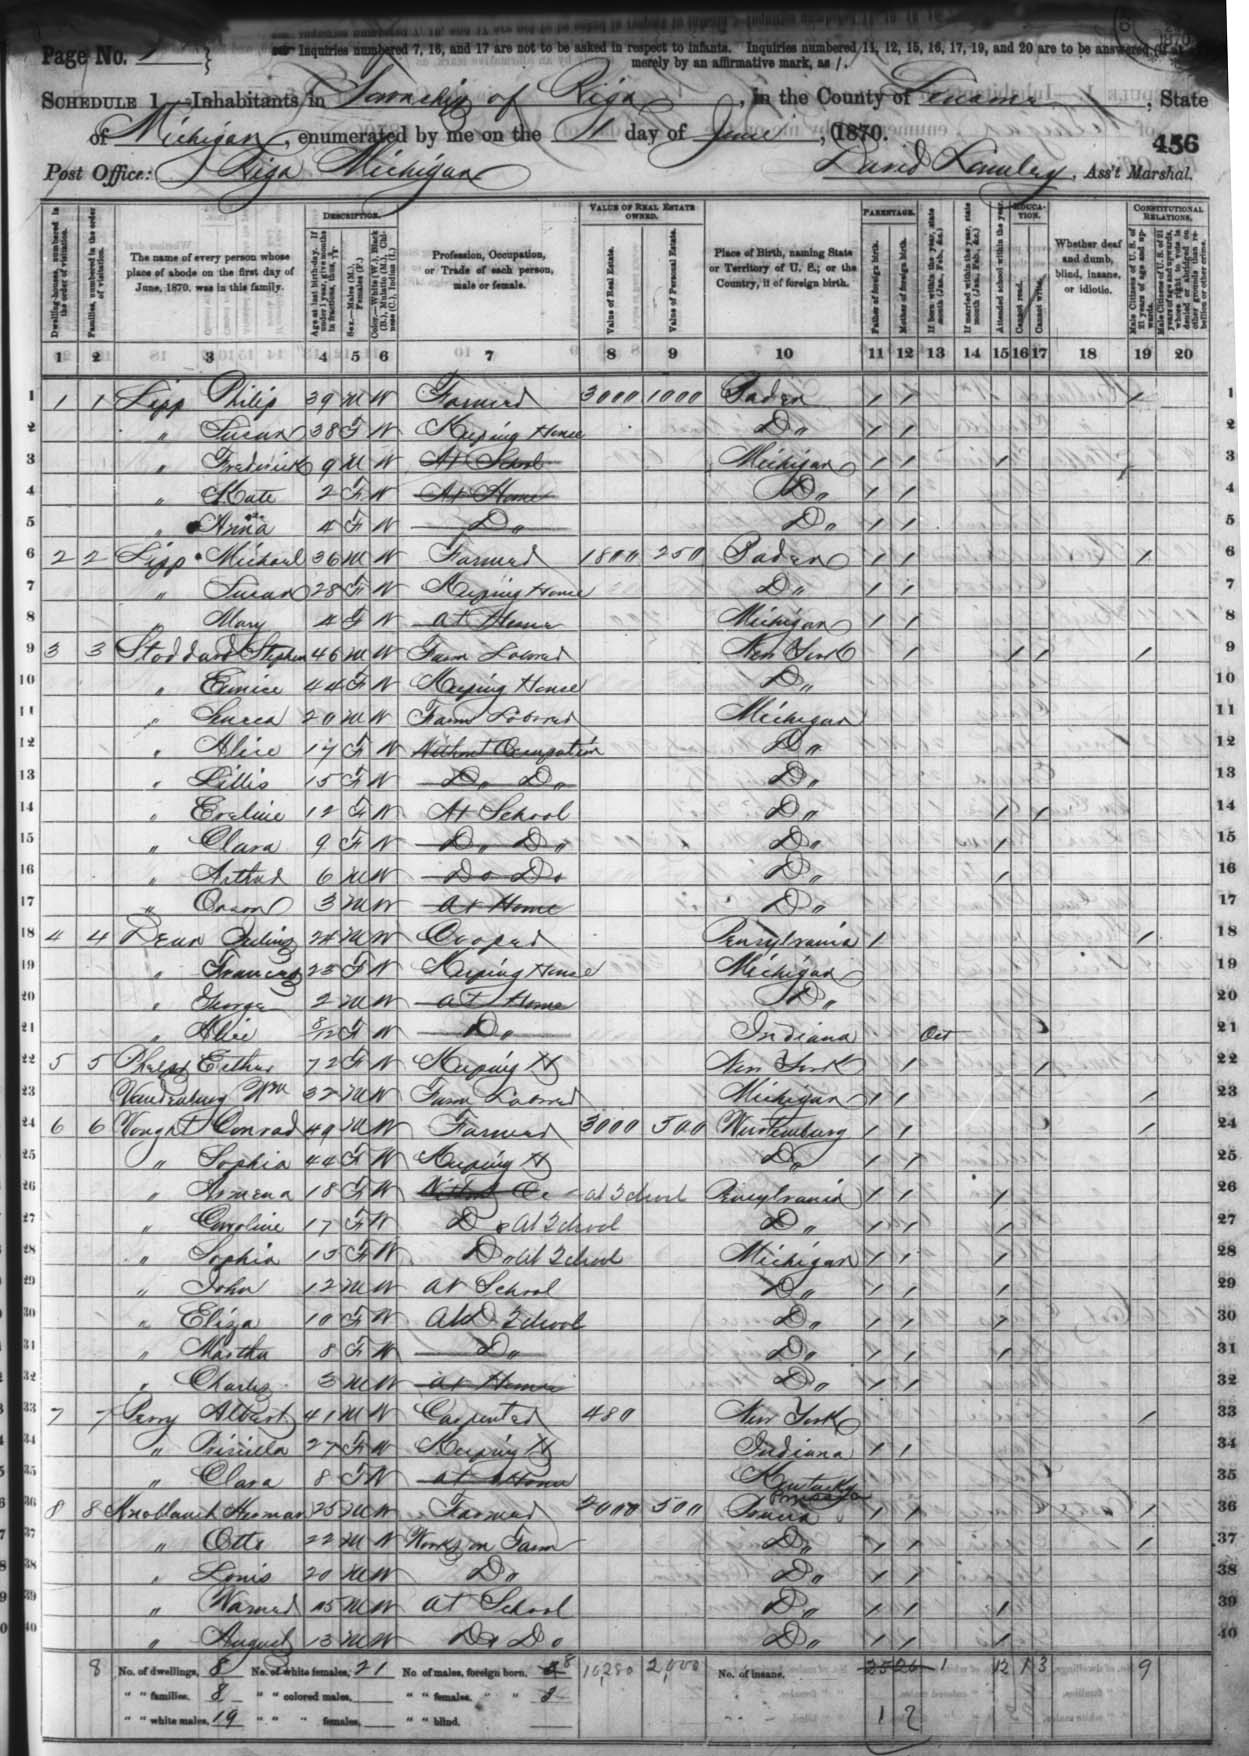 Page No. 1 }
Inquiries numbered 7, 16, and 17 are not to be asked in respect to infants. Inquiries numbered 11, 12, 15, 16, 17, 19, and 20 are to be answered (if at all)
merely by an affirmative mark, as /.
SCHEDULE 1.—Inhabitants in Township of Riga, in the County of Lenawee, State
of Michigan, enumerated by me on the 1 day of June, 1870.
456
Post Office: Riga Michigan David , Ass't Marshal.
Dwelling-houses, numbered in the order of visitation.
Families, numbered in the order of visitation.
The name of every person whose place of abode on the first day of June, 1870, was in this family.
DESCRIPTION.
Age at last birth-day. If under 1 year, give months in fractions, thus, 3/12
Sex.—Males (M.), Females (F.)
Color.—White (W.), Black (B.), Mulatto (M.), Chinese (C.), Indian (I.)
Profession, Occupation, or Trade of each person, male or female.
VALUE OF REAL ESTATE OWNED.
Value of Real Estate.
Value of Personal Estate.
Place of Birth, naming State or Territory of U. S.; or the Country, if of foreign birth.
PARENTAGE.
Father of foreign birth.
Mother of foreign birth.
If born within the year, state month (Jan., Feb., &c.)
If married within the year, state month (Jan., Feb., &c.)
EDUCATION.
Attended school within the year.
Cannot read.
Cannot write.
Whether deaf and dumb, blind, insane, or idiotic.
CONSTITUTIONAL RELATIONS.
Male Citizens of U. S. of 21 years of age and upwards.
Male Citizens of U. S. of 21 years of age and upwards, where right to vote is denied or abridged on other grounds than rebellion or other crime.
1 2 3 4 5 6 7 8 9 10 11 12 13 14 15 16 17 18 19 20
1 1 1 Lipp Philip 39 M W Farmer 3000 1000 Baden / / / 1
2 " Susan 38 F W Keeping House Do " / / 2
3 " Frederick 9 M W At School Michigan / / / 3
4 " Kate 2 F W At Home Do " / / 4
5 " Anna 4 F W Do " Do " / / 5
6 2 2 Lipp Michael 36 M W Farmer 1800 250 Baden / / / 6
7 " Susan 28 F W Keeping House Do " / / 7
8 " Mary 4 F W at Home Michigan / / 8
9 3 3 Stoddard Stephen 46 M W Farm Laborer New York / / / / 9
10 " Eunice 44 F W Keeping House Do " 10
11 " 20 M W Farm Laborer Michigan 11
12 " Alice 17 F W Without Occupation Do " 12
13 " Lillis 15 F W Do " Do " Do " 13
14 " Eveline 12 F W At School Do " / / 14
15 " Clara 9 F W Do " Do " Do " / 15
16 " Arthur 6 M W Do Do Do " / 16
17 " Orson 3 M W at Home Do " 17
18 4 4 Dean 24 M W Cooper Pensylvania / / 18
19 " Frances 23 F W Keeping House Michigan 19
20 " George 2 M W at Home Do " 20
21 " Alice 8/12 F W Do " Indiana Oct 21
22 5 5 Phelps Esther 72 F W Keeping H New York / / 22
23 Vandenburg Wm 32 M W Farm Laborer Michigan / / / 23
24 6 6 Vought Conrad 49 M W Farmer 3000 500 Wurtemburg / / / 24
25 " Sophia 44 F W Keeping H Do " / / 25
26 " 18 F W Without Oc - at School Pensylvania / / / 26
27 " Caroline 17 F W Do At School Do " / / / 27
28 " Sophia 15 F W Do At School Michigan / / / 28
29 " John 12 M W at School Do " / / / 29
30 " Eliza 10 F W At School Do " / / / 30
31 " Martha 8 F W Do " Do " / / / 31
32 " Charles 3 M W at Home Do " / / 32
33 7 7 Perry Albert 41 M W Carpenter 480 New York / 33
34 " Priscilla 27 F W Keeping H Indiana / / 34
35 " Clara 8 F W at Home Kentucky 35
36 8 8 Knoblauch Herman 25 M W Farmer 2000 500 Prussia / / / 36
37 " Otto 22 M W Works on Farm Do " / / / 37
38 " Louis 20 M W Do Do " / / 38
39 " Warner 15 M W at School Do " / / / 39
40 " August 13 M W Do Do Do " / / / 40
8 No. of dwellings, 8 No. of white females, 21 No. of males, foreign born, 8 10,280 2,000 No. of insane, 25 26 1 12 1 3 9
" " families, 8 " " colored males, " " females, " " 3
" " white males, 19 " " " females, " " blind, 1 2